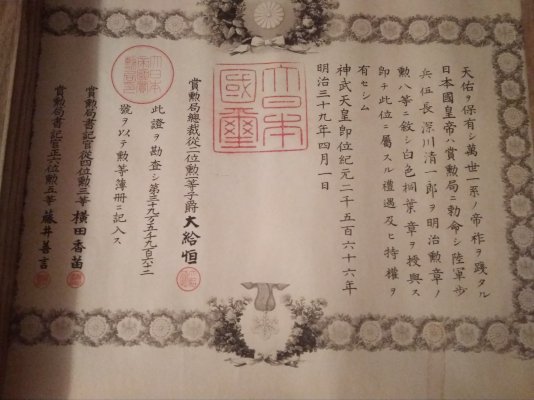 天佑ヲ保有シ萬世一系ノ帝祚ヲ踐タル
日本國皇帝ハ賞勲局ニ勅命シ陸軍步
兵伍長深川清一郎ヲ明治勲章ノ
勲八等ニ敘シ白色桐葉章ヲ授與ス
即チ此位ニ屬スル禮遇及ヒ特權ヲ
有セシム
神武天皇即位紀元二千五百六十六年
明治三十九年四月一日
大日本國璽
賞勲局總裁從二位勲一等子爵大給恒
此證ヲ勘査シ第三十九万五千九百六十二
號ヲ以テ勲等簿冊ニ記入ス
大日本帝國賞勲局印
賞勲局書記官從四位勲三等橫田香苗
賞勲局書記官正六位勲五等藤井善言